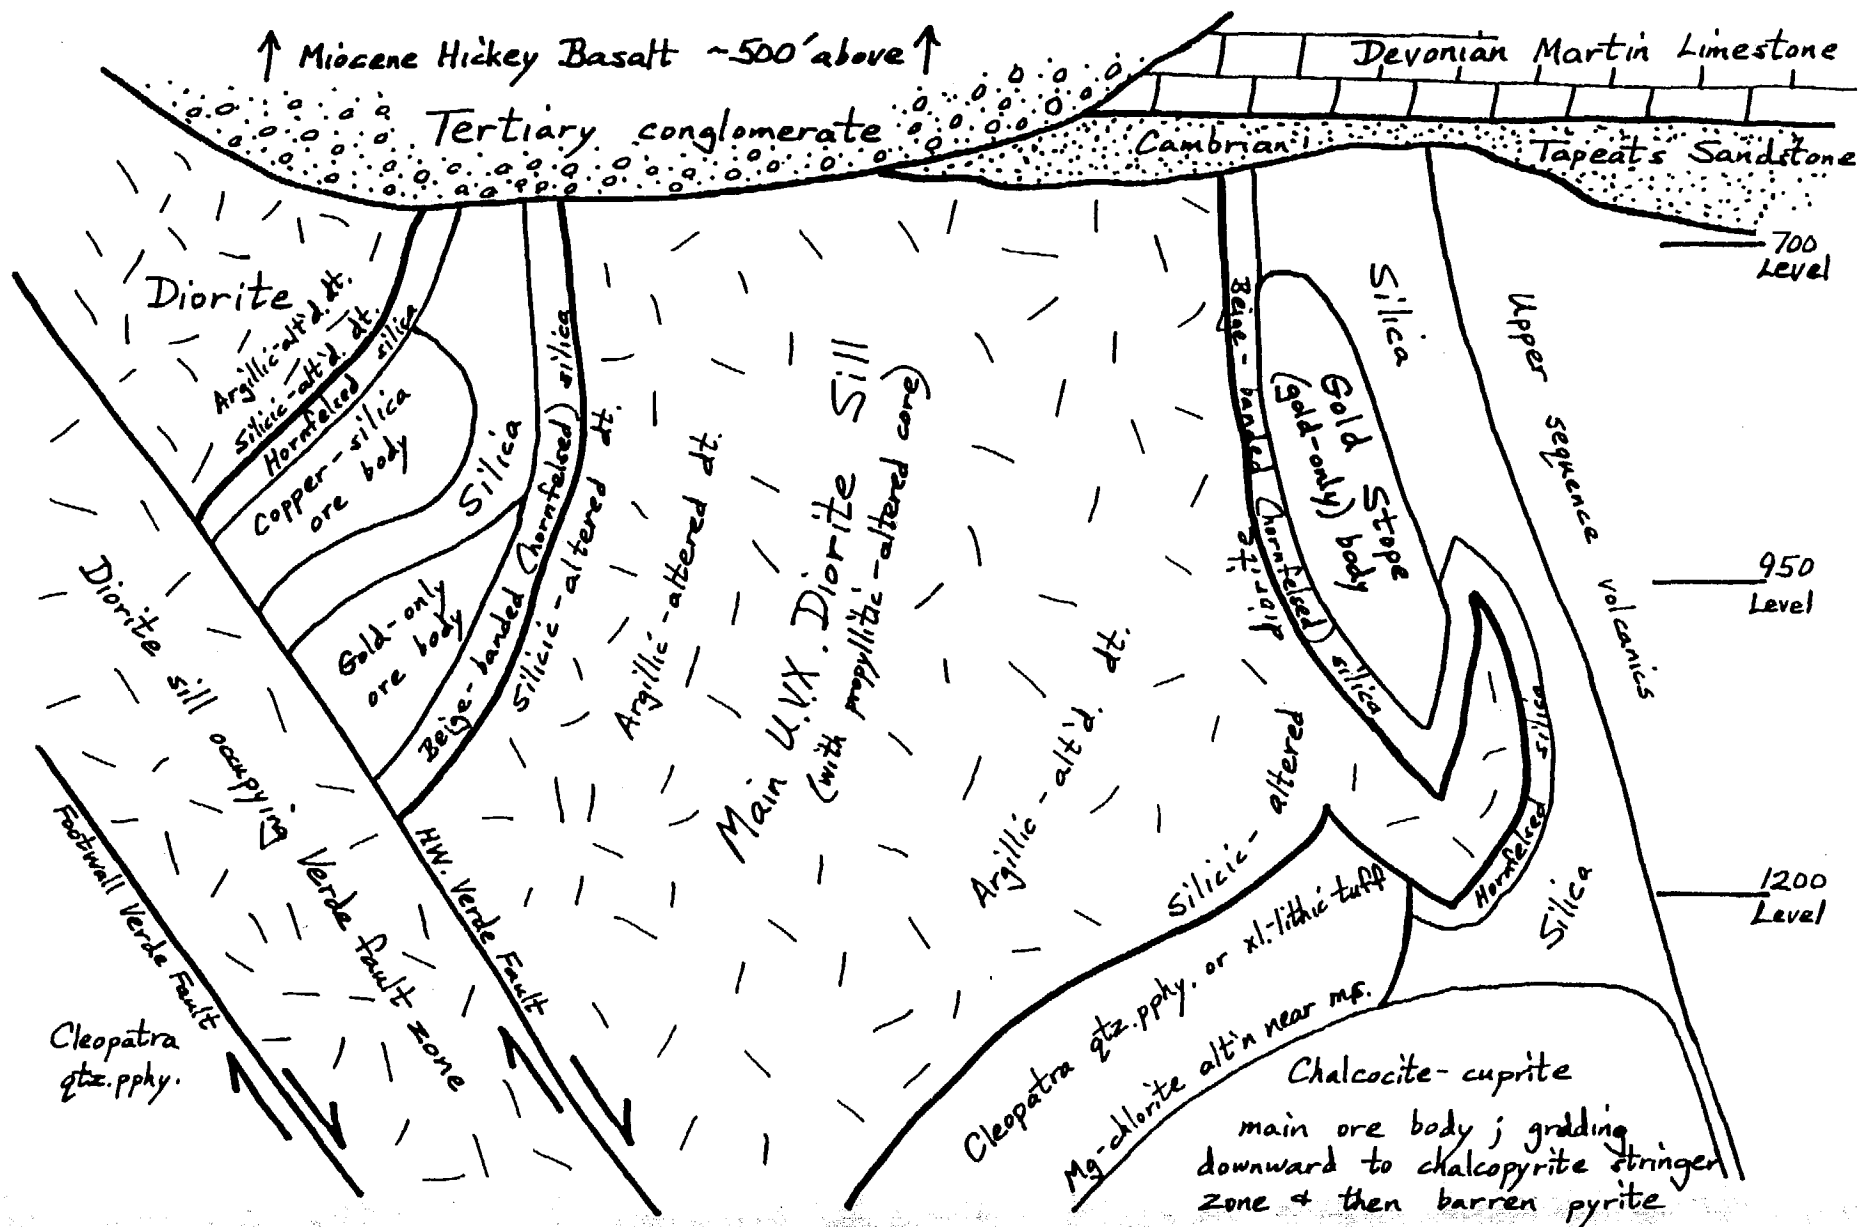 ↑ Miocene Hickey Basalt ~500' above ↑
Devonian Martin Limestone
Tertiary conglomerate
Cambrian
Tapeats Sandstone
700
Level
Diorite
Argillic-alt'd. dt.
Silicic-alt'd. dt.
Hornfelsed silica
Copper-silica
ore body
Silica
Gold-only
ore body
Beige-banded (hornfelsed) silica
Silicic-altered dt.
Argillic-altered dt.
Main U.V.X. Diorite Sill
(with propyllitic-altered core)
Argillic-alt'd. dt.
Silicic-altered
diorite
Beige-banded (hornfelsed) silica
Gold Stope
(gold-only) body
Silica
Upper sequence volcanics
950
Level
Hornfelsed silica
Silica
1200
Level
Diorite sill occupying Verde fault zone
Footwall Verde Fault
H.W. Verde Fault
Cleopatra
qtz.pphy.
Cleopatra qtz.pphy. or xl.-lithic tuff
Mg-chlorite alt'n near ms.
Chalcocite-cuprite
main ore body; grading
downward to chalcopyrite stringer
zone & then barren pyrite